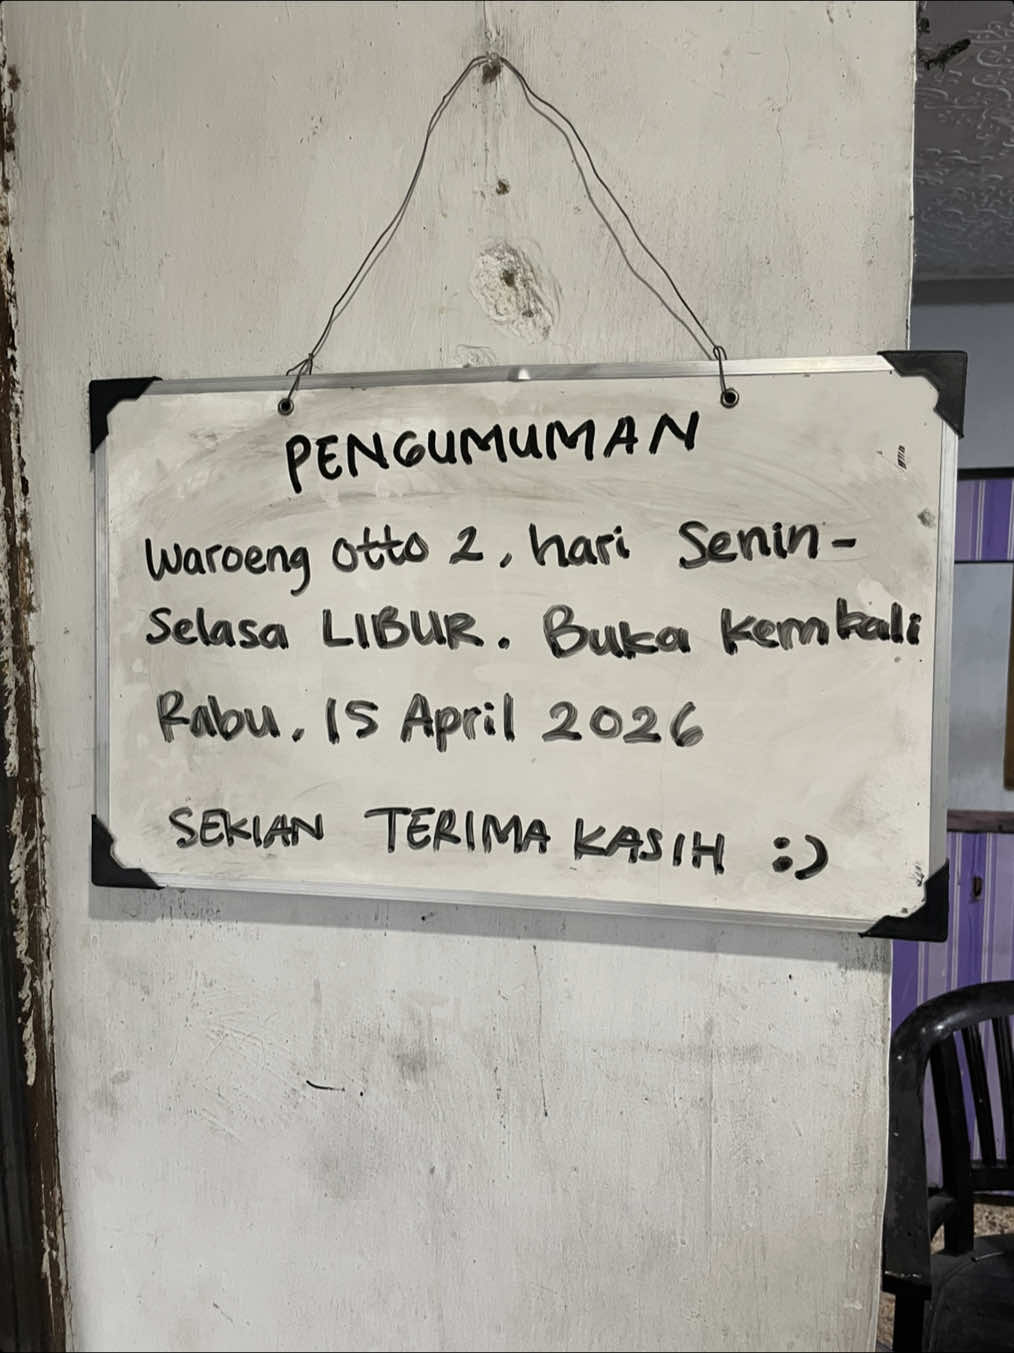 PENGUMUMAN
Waroeng Otto 2, hari Senin -
Selasa LIBUR. Buka Kembali
Rabu, 15 April 2026
SEKIAN TERIMA KASIH :)